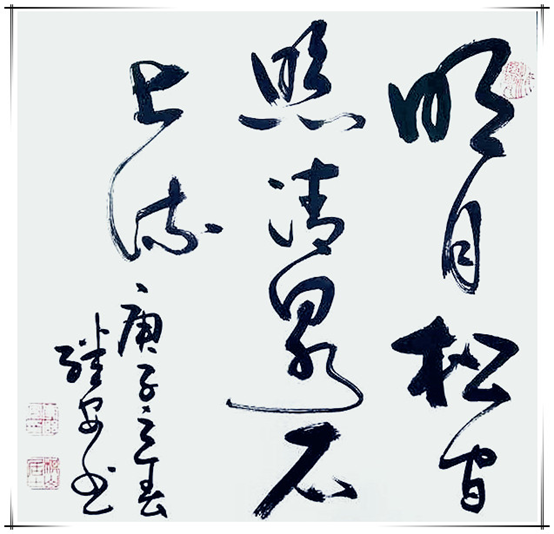 明月松间
照清泉石
上流
庚子之春
书